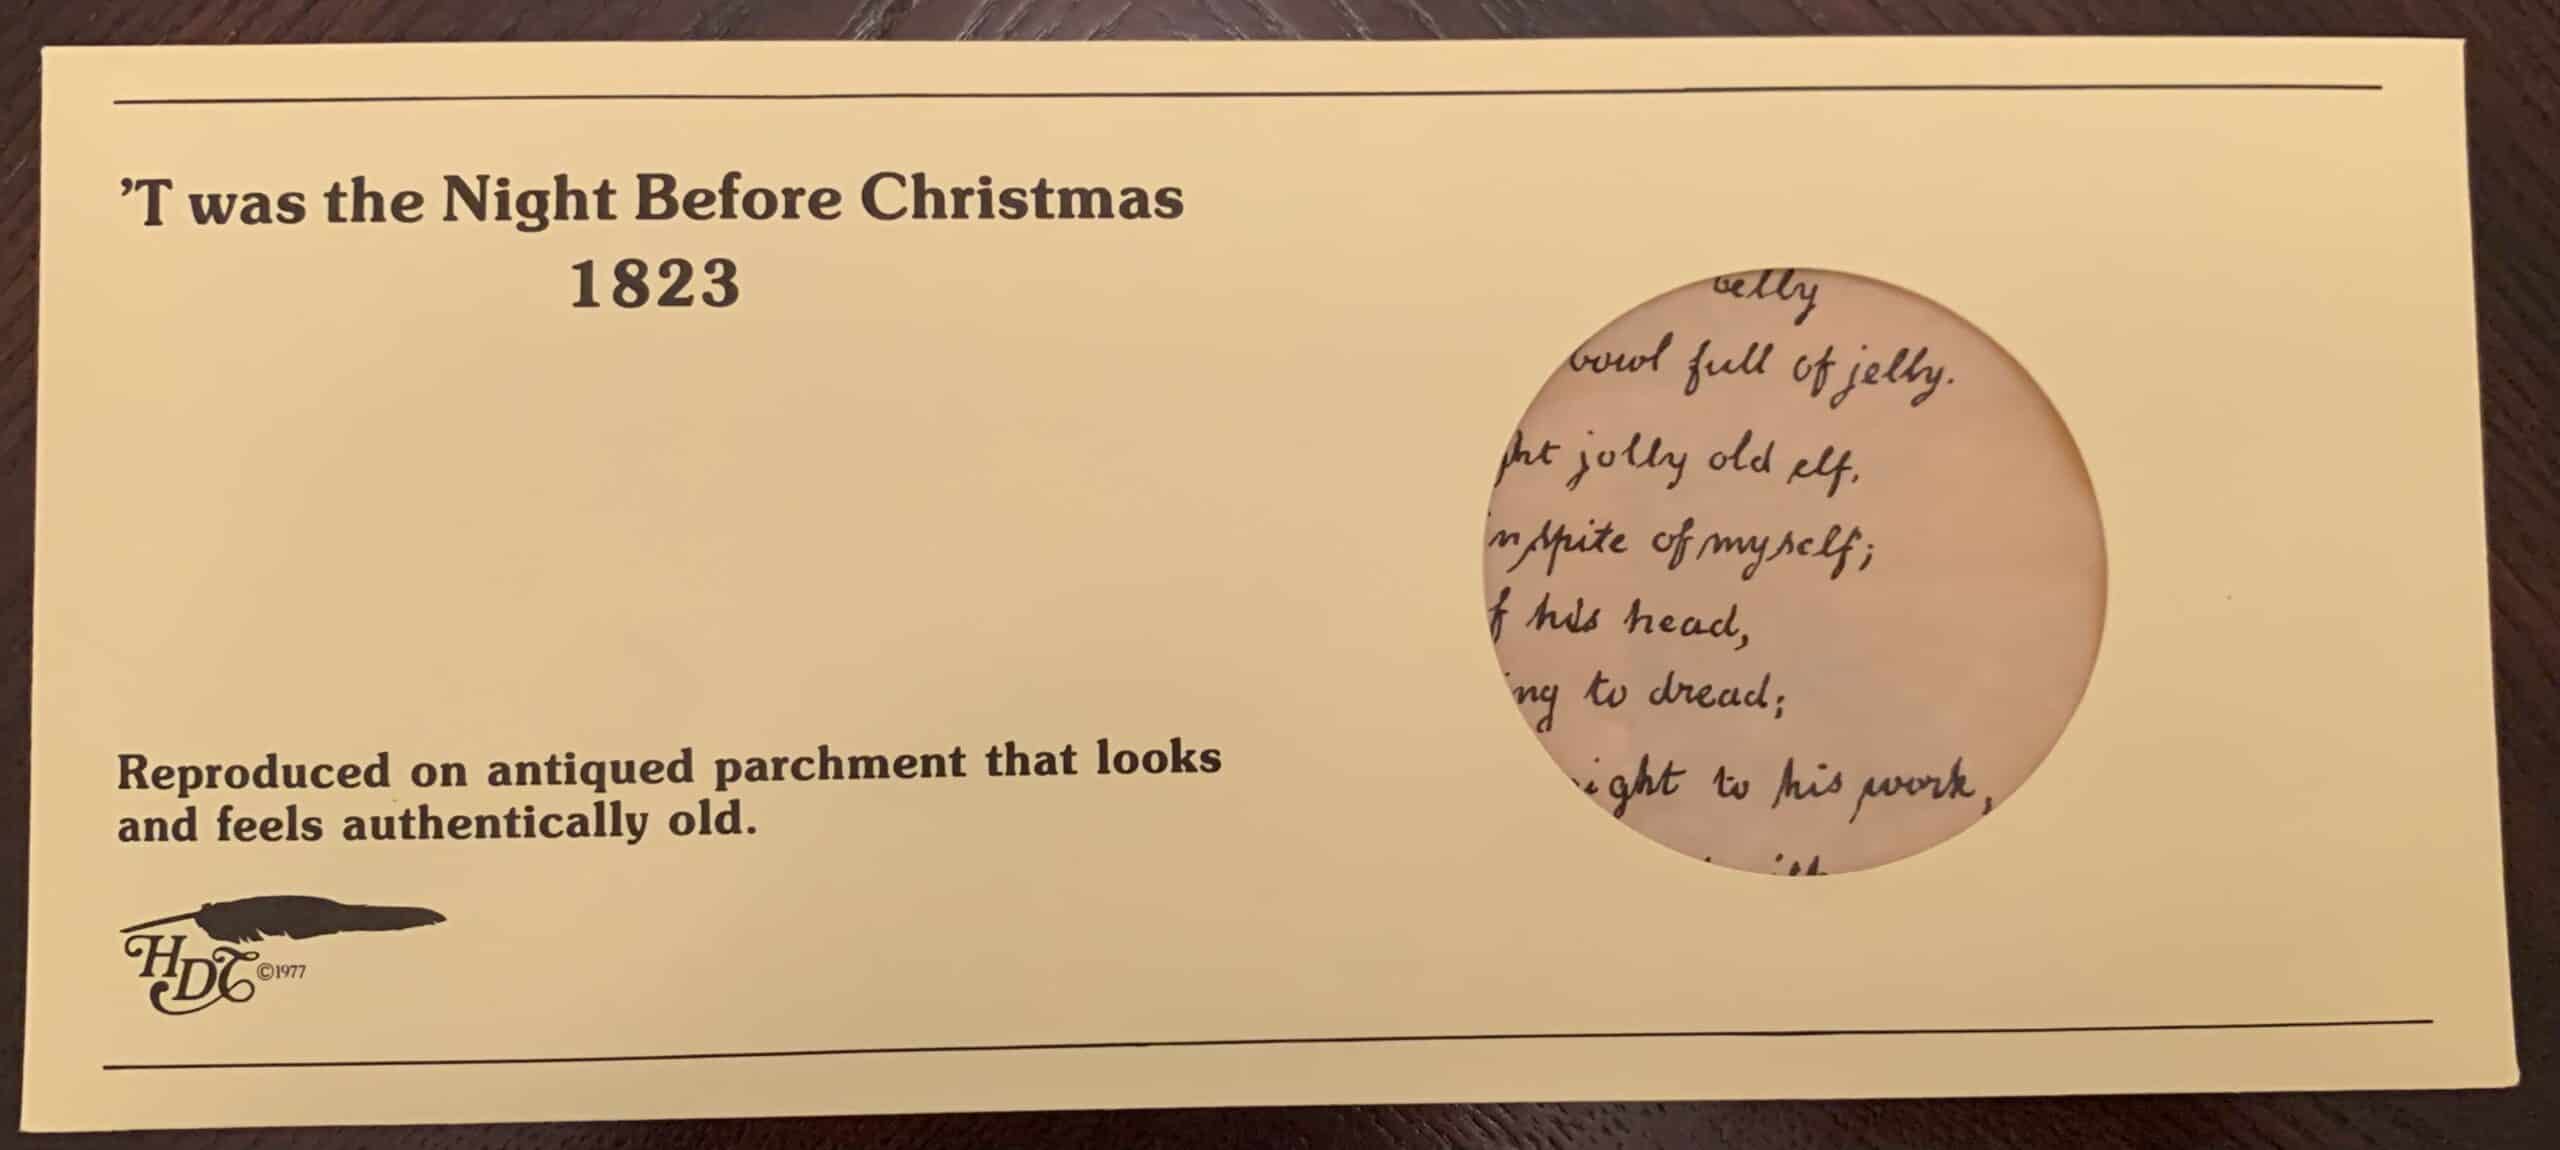 'T was the Night Before Christmas
1823
Reproduced on antiqued parchment that looks
and feels authentically old.
HDT ©1977
belly
bowl full of jelly.
ght jolly old elf,
in spite of myself;
f his head,
ing to dread;
ight to his work,